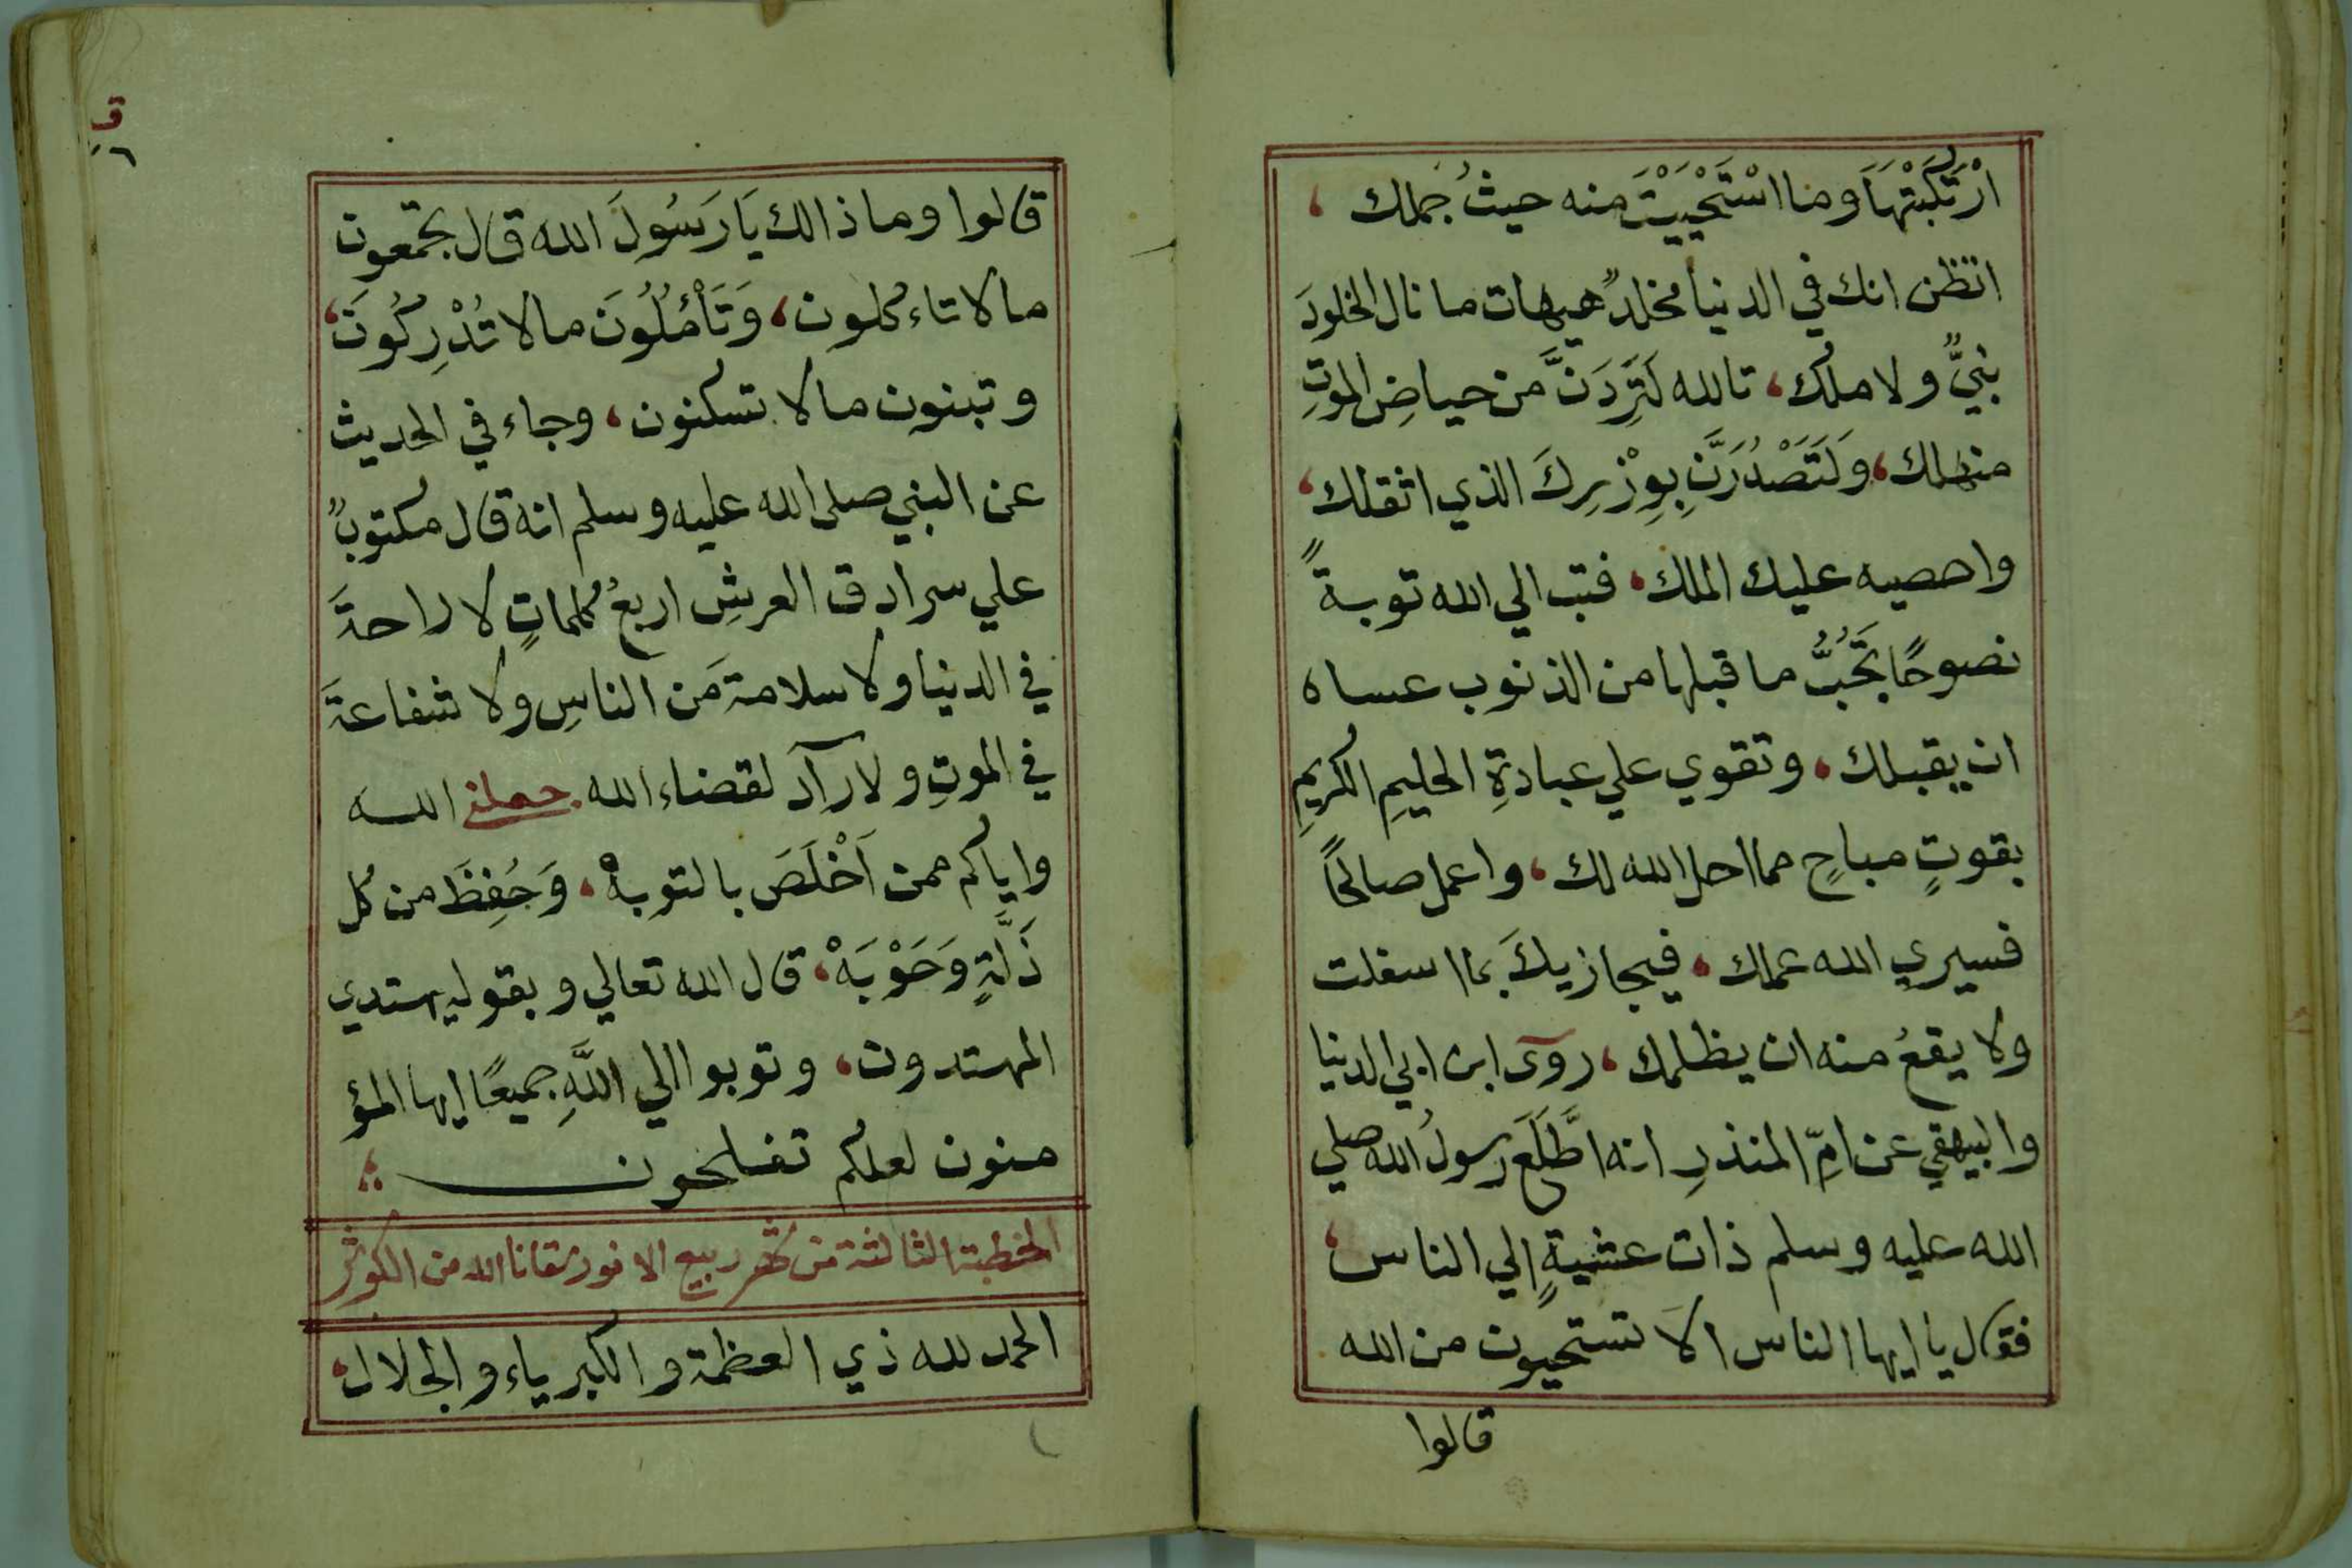 ارْتَكَبْتَهَا وما اسْتَحْيَيْتَ منه حيثُ جملك ،
اتظن انك في الدنيا مخلدٌ هيهات ما نال الخلودَ
نبيٌّ ولا ملك ، تالله لَتَرِدَنَّ من حياضِ الموتِ
منهلك ، وَلَتَصْدُرَنَّ بِوِزْرِكَ الذي اثقلك ،
واحصيه عليك الملك ، فتب الي الله توبةً
نصوحًا تَجُبُّ ما قبلها من الذنوب عساه
ان يقبلك ، وتقوي علي عبادةِ الحليمِ الكريمِ
بقوتٍ مباحٍ مما احل الله لك ، واعمل صالحًا
فسيري الله عملك ، فيجازيكَ بما اسفلت
ولا يقعُ منه ان يظلمك ، روى ابن ابي الدنيا
والبيهقي عن امِّ المنذرِ انه اطَّلَعَ رسولُ الله صلي
الله عليه وسلم ذات عشيةٍ الي الناس ،
فقال يا ايها الناس الا تستحيون من الله
قالوا
ق
٦
قالوا وما ذالك يَا رَسُولَ الله قال تجمعون
مالا تاءكلون ، وَتَأْمُلُونَ مالا تُدْرِكُونَ ،
وتبنون مالا تسكنون ، وجاء في الحديث
عن النبي صلى الله عليه وسلم انه قال مكتوبٌ
علي سرادق العرشِ اربعُ كلماتٍ لا راحةَ
في الدنيا ولا سلامةَ من الناسِ ولا شفاعةَ
في الموتِ ولا رآد لقضاء الله جعلني الله
واياكم ممن اَخْلَصَ بالتوبهْ ، وَحُفِظَ من كل
ذَلَّةٍ وَحَوْبَهْ ، قال الله تعالي وبقوله يهتدي
المهتدون ، وتوبوا الي اللَّهِ جميعًا ايها المؤ
منون لعلكم تفلحون
الخطبة الثالثة من شهر ربيع الانور سقانا الله من الكوثر
الحمد لله ذي العظمة والكبرياء والجلال ،